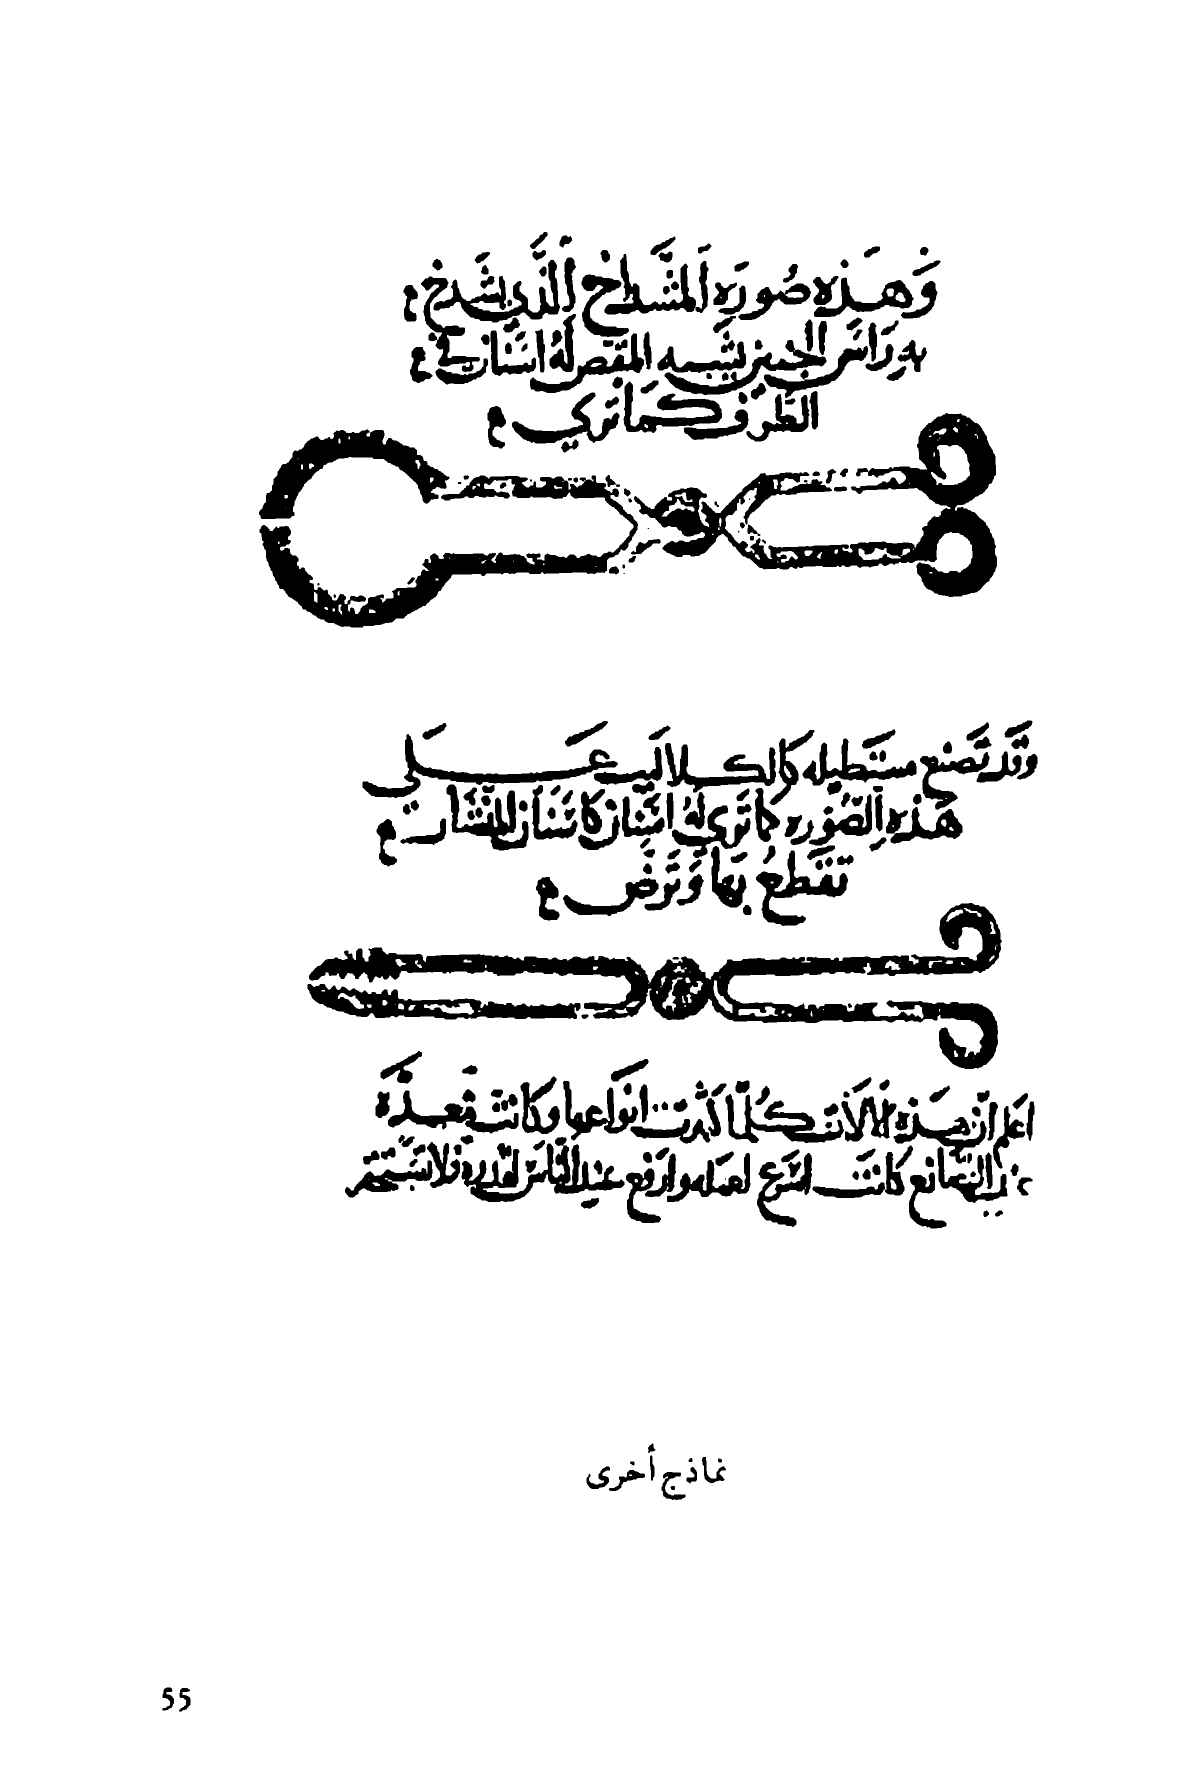 وَهَذِهِ صُورَةِ اَلمَشَّطاخ اَلَّذي يشَدخ
به رَاسَ الجنين يشبه المقص لَهُ اسنَان في
الطَّرَف كمَا تَرَي
وقَد تَصنَع مستَطيله كالكلاليب عَلَي
هَذِهِ الصُّورَه كَمَا تَرَي لَهُ اسنَان كاسنَان المنشار
تَقطَعُ بِهَا وَتَرضّ
اعلم انّ هَذه الالات كلّما كثرت انواعها وكانت مُعدَّة
الصَّانع كانت اسرَع لعمله وارفع عند النَّاس لقدره فلا تستحقر
نماذج أخرى
55